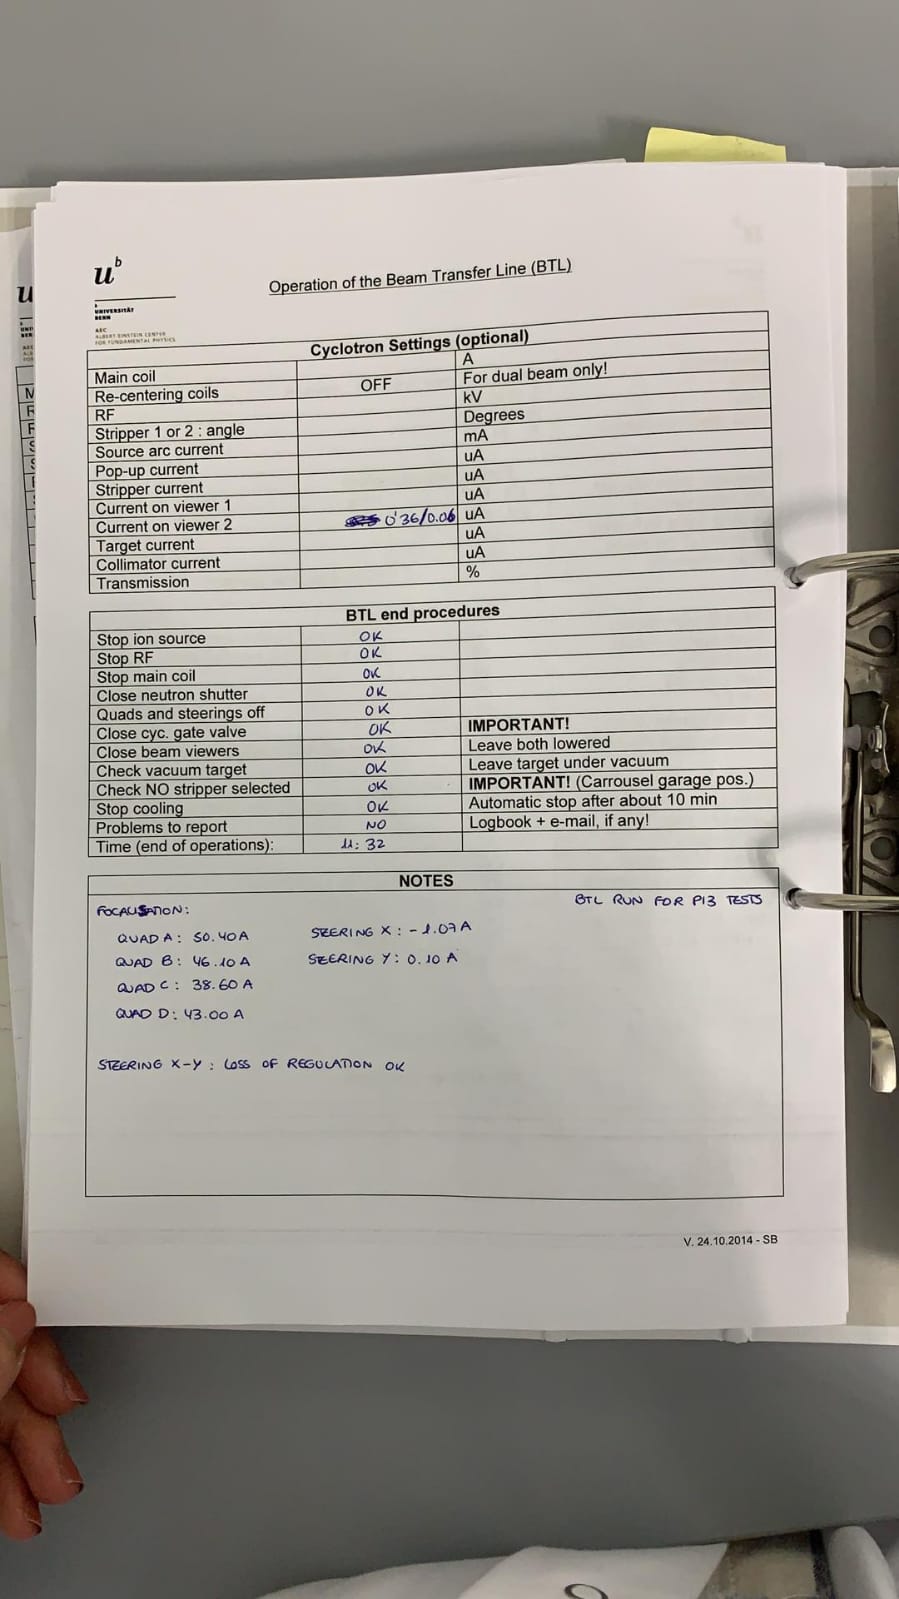 u^b
b
UNIVERSITÄT
BERN
AEC
ALBERT EINSTEIN CENTER
FOR FUNDAMENTAL PHYSICS
Operation of the Beam Transfer Line (BTL)
Cyclotron Settings (optional)
Main coil A
Re-centering coils OFF For dual beam only!
RF kV
Stripper 1 or 2 : angle Degrees
Source arc current mA
Pop-up current uA
Stripper current uA
Current on viewer 1 uA
Current on viewer 2 0'36/0.06 uA
Target current uA
Collimator current uA
Transmission %
BTL end procedures
Stop ion source OK
Stop RF OK
Stop main coil OK
Close neutron shutter OK
Quads and steerings off OK
Close cyc. gate valve OK IMPORTANT!
Close beam viewers OK Leave both lowered
Check vacuum target OK Leave target under vacuum
Check NO stripper selected OK IMPORTANT! (Carrousel garage pos.)
Stop cooling OK Automatic stop after about 10 min
Problems to report NO Logbook + e-mail, if any!
Time (end of operations): 11:32
NOTES
BTL RUN FOR P13 TESTS
FOCALISATION:
QUAD A: 50.40 A STEERING X: -1.07 A
QUAD B: 46.10 A STEERING Y: 0.10 A
QUAD C: 38.60 A
QUAD D: 43.00 A
STEERING X-Y: LOSS OF REGULATION OK
V. 24.10.2014 - SB